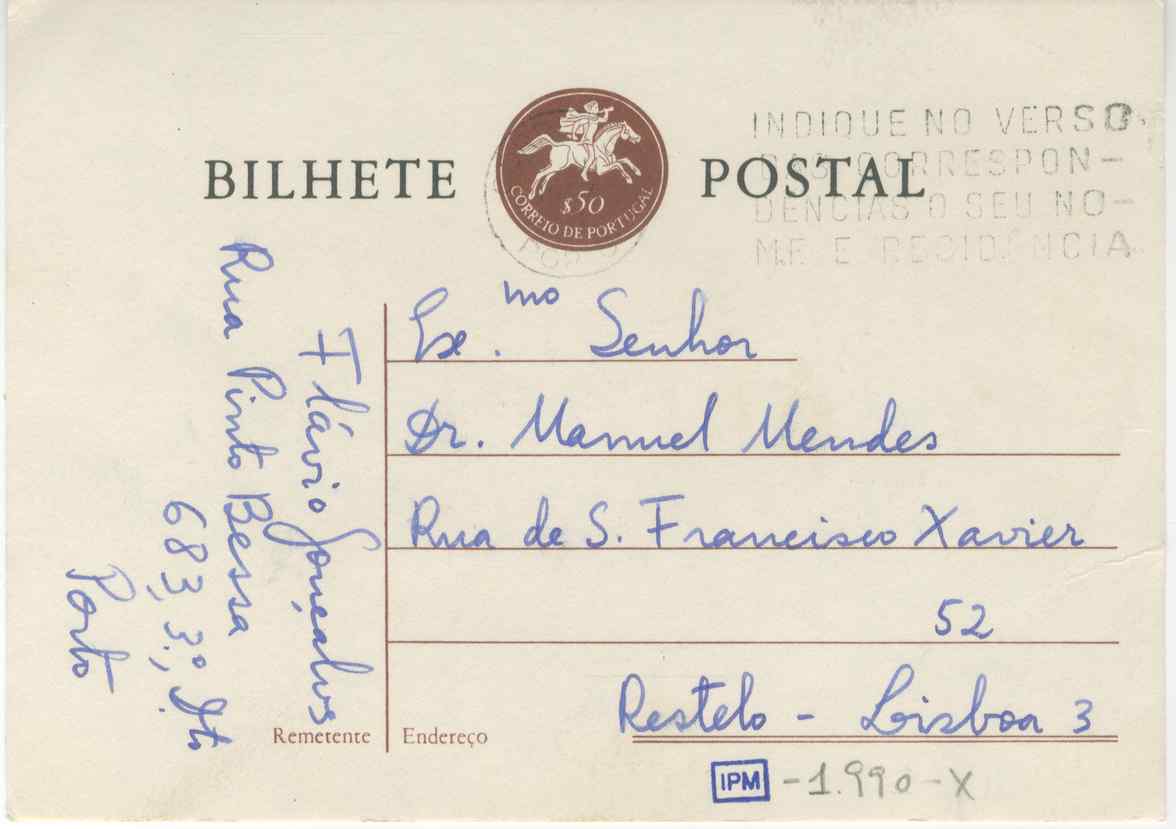 BILHETE POSTAL
$50
CORREIO DE PORTUGAL
INDIQUE NO VERSO
DAS CORRESPON-
DENCIAS O SEU NO-
ME E RESIDÊNCIA
Ex.mo Senhor
Dr. Manuel Mendes
Rua de S. Francisco Xavier
52
Restelo - Lisboa 3
Flávio Gonçalves
Rua Pinto Bessa
683, 3.º, Dto
Porto
Remetente
Endereço
IPM -1.990-X